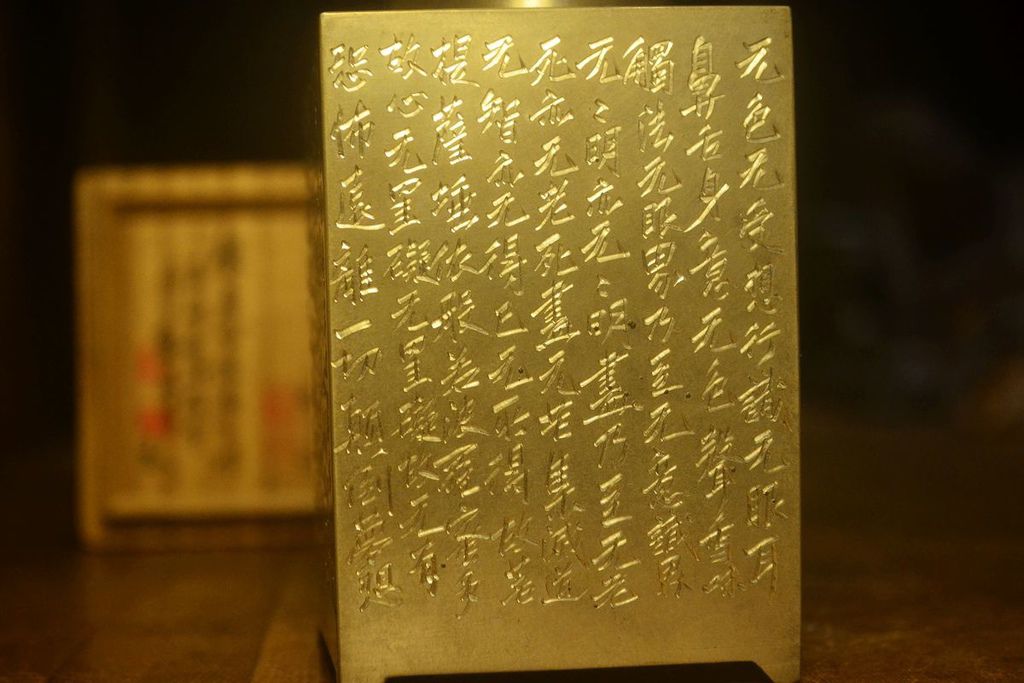 无色无受想行識无眼耳
鼻舌身意无色聲香味
觸法无眼界乃至无意識界
无〻明亦无〻明盡乃至无老
死亦无老死盡无苦集滅道
无智亦无得以无所得故菩
提薩埵依般若波羅蜜多
故心无罣礙无罣礙故无有
恐怖遠離一切顛倒夢想